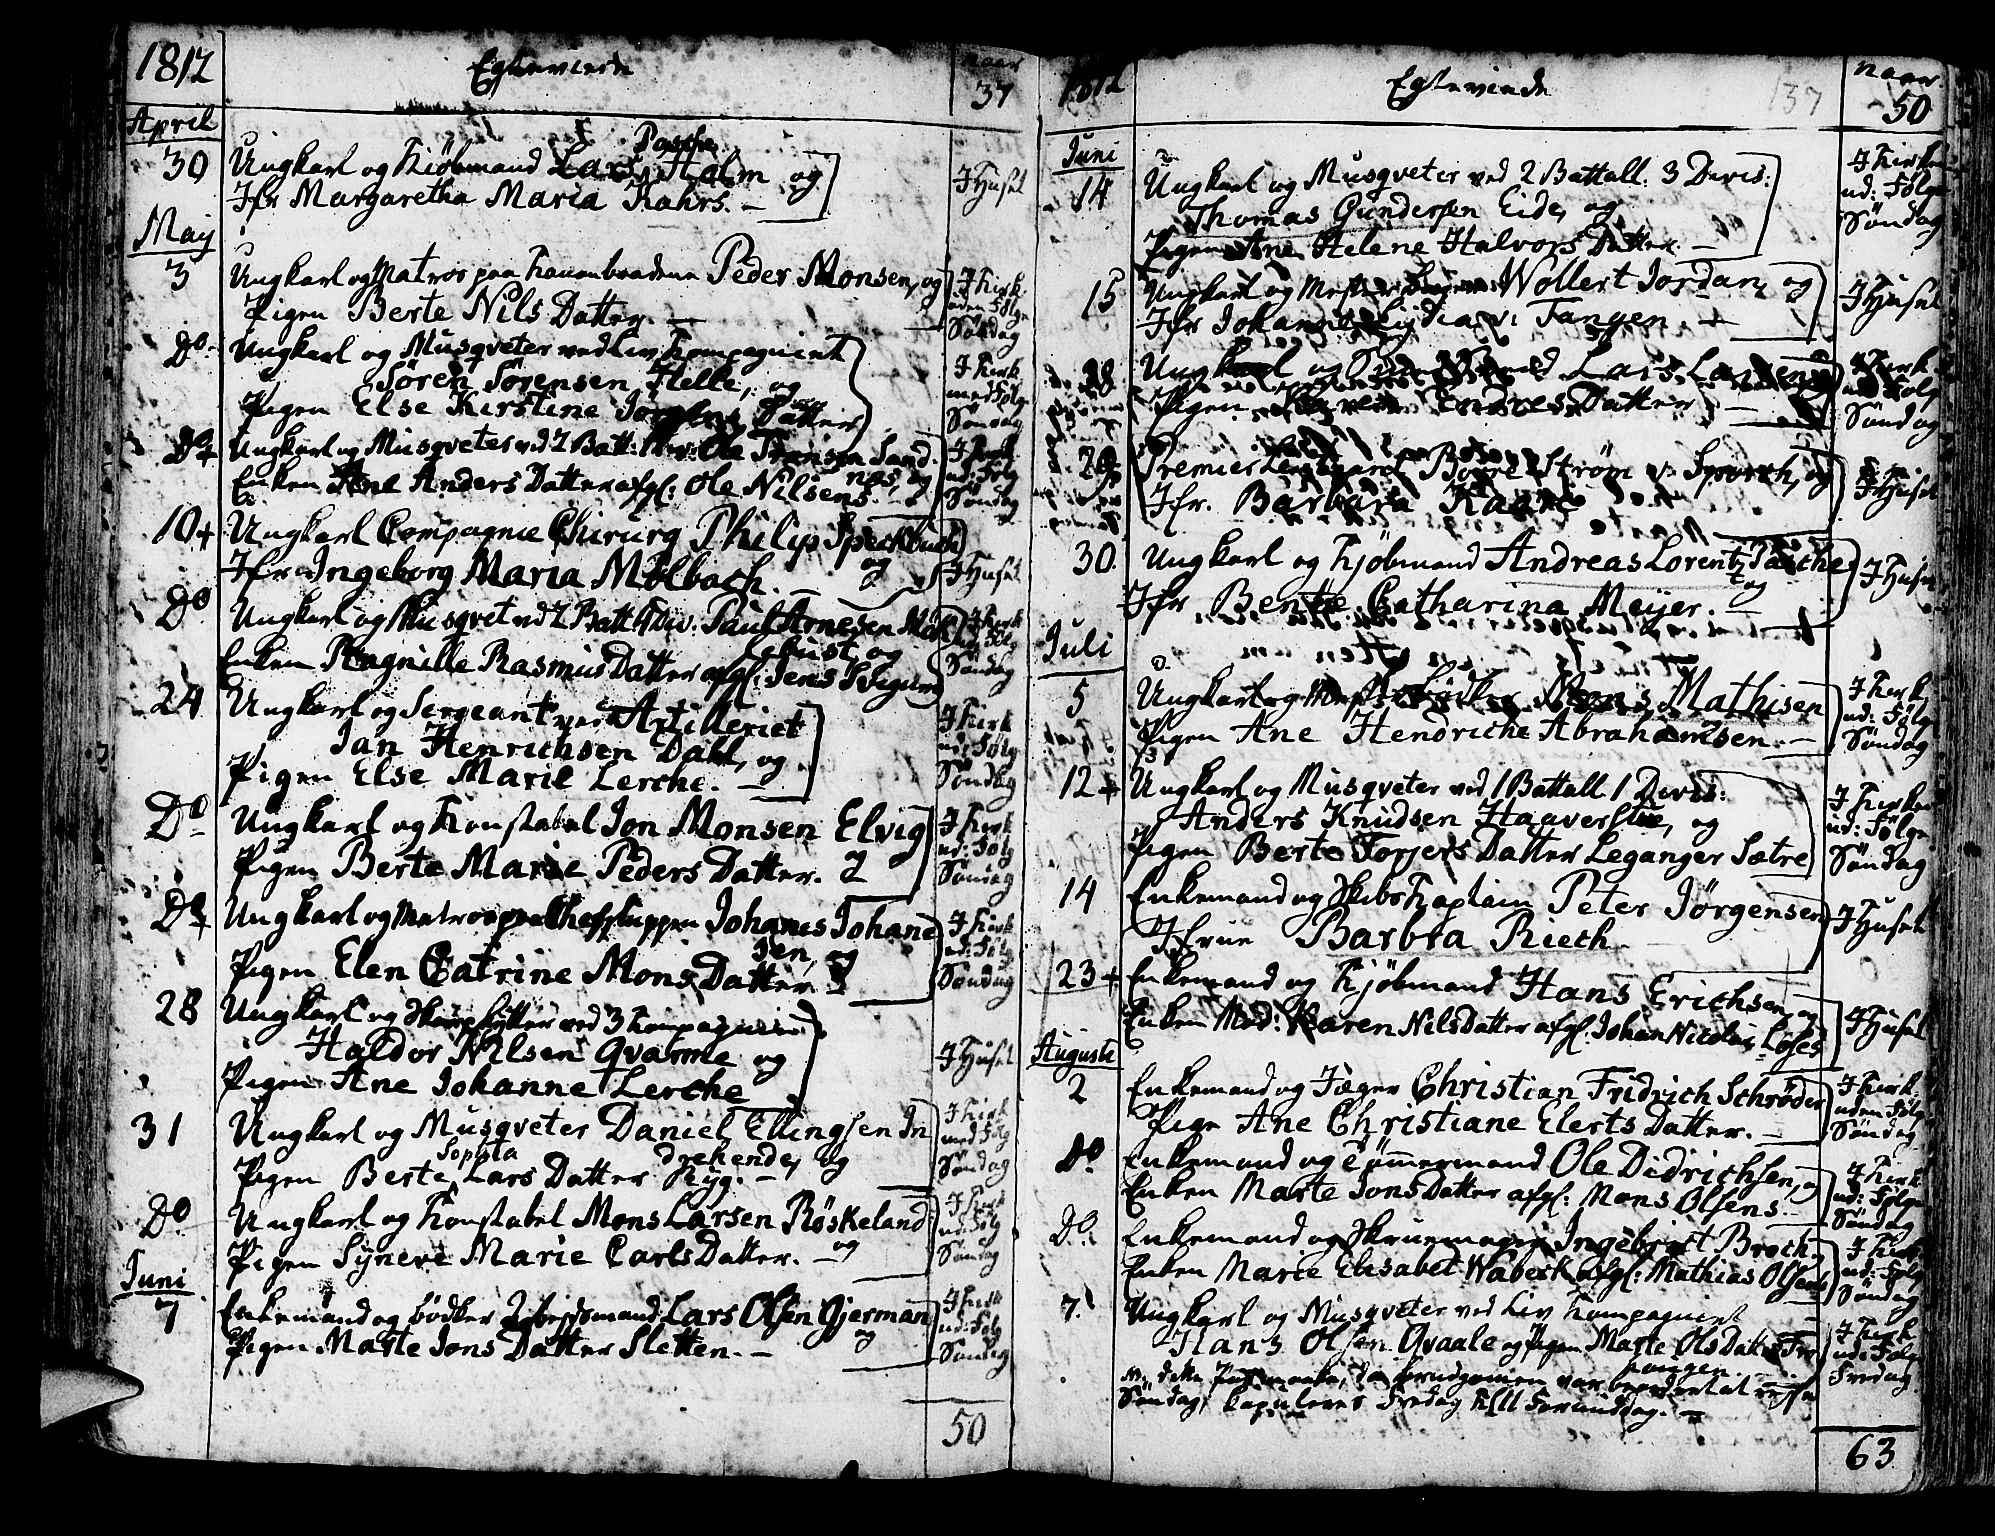 1812
Egteviede
naar
37
April
30
Ungkarl og Kiöbmand Lars Holm og
Pasche
Jfr Margaretha Maria Kahrs. —
I Huset
May
3
Ungkarl og Matros paa Kanonbaadene Peder Monsen, og
Pigen Berte Nils Datter. —
I Kirk
uden Følge
Søndag
Do
Ungkarl og Musqveter ved Liv Kompagniet
Sören Sörensen Helle, og
Pigen Else Kirstine Jörgens Datter
I Kirk
med Følge
Søndag
Do +
Ungkarl og Musqveter ved 2 Batt: Ole Transen Sand
nes, og
Enken Ane Anders Datter afgl: Ole Nilsens.
I Kirk
ud: Følg
Søndag
10 +
Ungkarl Compagnie Chirurg Philip Speckbuch
og
Jfr Ingeborg Maria Mølbach. —
I Huset
Do
Ungkarl og Musqvet ved 2 Batt 4 Div: Paul Arnesen
og
Enken Pernille Rasmus Datter afgl: Jens
I Kirk
ud: Følg
Søndag
24
Ungkarl og Sergeant ved Artilleriet
Jan Henrichsen Dahl, og
Pigen Else Marie Lerche. —
I Kirk
ud: Følg
Søndag
Do
Ungkarl og Konstabel Jon Monsen Elvig
Pigen Berte Marie Peders Datter.
I Kirk
ud: Følg
Søndag
Do +
Ungkarl og Matros paa Chefsluppen Johanes Johane
sen, og
Pigen Elen Catrine Mons Datter
I Kirk
ud: Følg
Søndag
28
Ungkarl og Skarpskytter ved 3 Kompagnie
Haldor Nilsen Qvamme og
Pigen Ane Johanne Lerche
I Huset
31
Ungkarl og Musqveter Daniel Ellingsen In
drehende, og
Sophia
Pigen Berte Lars Datter Ryg. —
I Kirk
med Følg
Søndag
Do
Ungkarl og Konstabel Mons Larsen Röskeland
og
Pigen Syneve Marie Carls Datter. —
I Kirk
ud: Følg
Søndag
Juni
7
Enkemand og bödker Arbeidsmand Lars Olsen Gjerman
og
Pigen Marte Jons Datter Sletten. —
I Kirk
ud: Følg
Søndag
50
1812
Egteviede
137
naar
50
Juni
14
Ungkarl og Musqveter ved 2 Battall: 3 Divis:
Thomas Gundersen Eide, og
Pigen Ane Helene Halvors Datter. —
I Kirke
ud: Følge
Søndag
15
Ungkarl og Mester Wollert Jordan, og
Jfr Johanne Lydia v: Tangen —
I Huset
28
Ungkarl og Lars Larsen
Pigen Endres Datter —
I Kirk
ud: Følg
Søndag
Premier Leutenant Boyre Ström v: Sporck, og
Jfr. Barbara Kaare
I Huset
30.
Ungkarl og Kjöbmand Andreas Lorentz Pasche
og
Jfr Bente Catharina Meyer. —
I Huset
Juli
5
Ungkarl og Mons Mathisen
og
Pigen Ane Hendriche Abrahamsen. —
I Kirk
ud: Følge
Søndag
12 +
Ungkarl og Musqveter ved 1 Battall. 1 Divis:
Anders Knudsen Haaverstie, og
Pigen Berte Torjers Datter Leganger Sætre
I Kirken
ud: Følge
Søndag
14
Enkemand og Skibs Kaptain Peter Jörgensen
Jfrue Barbra Riech
I Huset
23 +
Enkemand og Kjöbmand Hans Erichsen, og
Enken Mad: Karen Nils Datter afgl. Johan Nicolai Loses
I Huset
Augusti
2
Enkemand og Jæger Christian Fridrich Schröder
Pige Ane Christiane Elerts Datter. —
I Kirk
uden Følg
Søndag
Do
Enkemand og Tömmermand Ole Didrichsen, og
Enken Marte Jons Datter afgl: Mons Olsens. —
I Kirk
ud: Følge
Søndag
Do
Enkemand og Skruemager Ingebrigt Broch
Enken Marie Elisabet Wabeck afgl: Mathias Olsens
I Kirk
ud: Følg
Søndag
7
Ungkarl og Musqveter ved Liv Kompagniet
Hans Olsen Qvaale og Pigen Marte Ols Datter
da brudgomen var beordret at reise
Søndag, kopuleres Fredag Kl 11 Formiddag. —
I Kirk
ud: Følge
Fredag
63